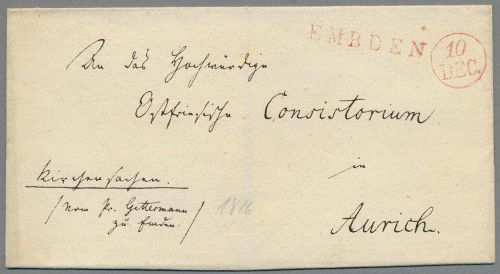 EMBDEN
10
DEC.
An das Hochwürdige
Ostfriesische Consistorium
in
Aurich.
Kirchensachen.
/ Vom Pr. Gittermann
zu Emden. /
1816